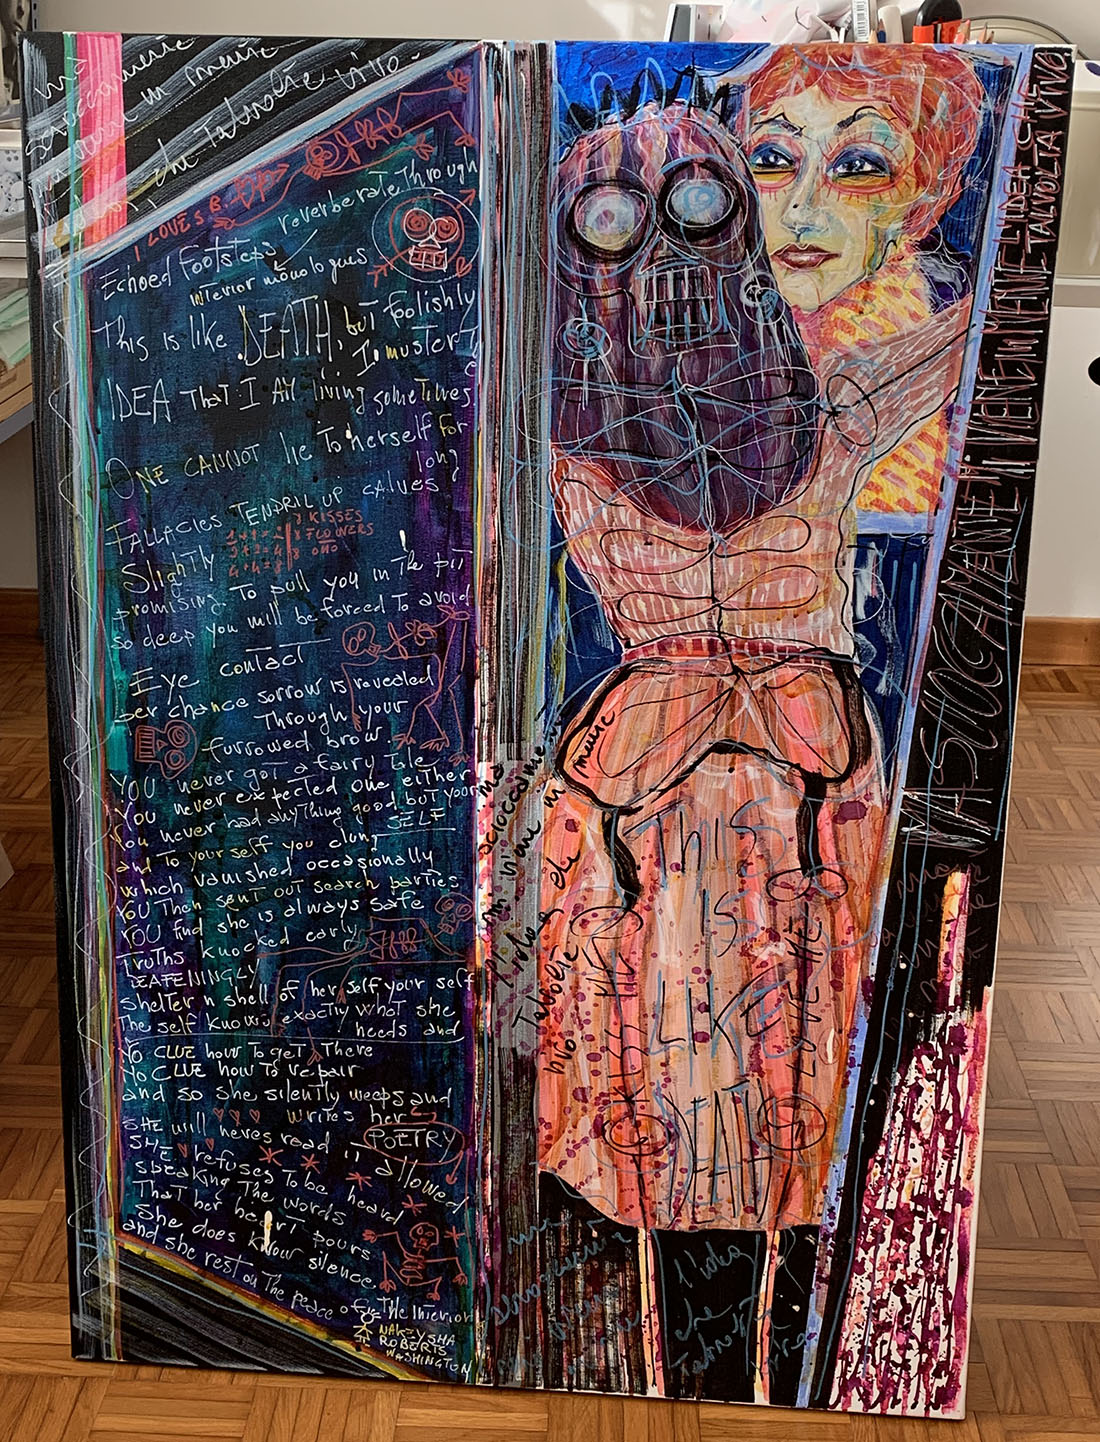 I LOVES B.
Echoed Footsteps reverberate Through
interior monologues
This is like DEATH, but foolishly
I muster
IDEA That I AM living sometimes
ONE CANNOT lie To herself for
long
FALLACIES TENDRIL UP CALVES
KISSES
FLOWERS
Slightly
promising To pull you in The pit
so deep you will be forced To avoid
Eye contact
per chance sorrow is revealed
Through your
furrowed brow
YOU never got a fairy Tale
YOU never expected one either
You never had anything good but your
SELF
and To yourself you clung
which vanished occasionally
YOU Then sent out search parties
YOU find she is always safe
Truths knocked early
DEAFENINGLY
Shelter n shell of her self your self
The self knows exactly what she
needs and
NO CLUE how To get There
NO CLUE how To repair
and so she silently weeps and
writes her
POETRY
SHE will never read it allowed
SHE refuses To be heard
speaking The words
That her heart pours
She does know silence.
and she rest on The peace of The Interior
NAKEYSHA
ROBERTS
WASHINGTON
music
THIS
IS
LIKE
DEATH
LOVE ME
MA SCIOCCAMENTE MI VIENE IN MENTE L'IDEA CHE
TALVOLTA VIVA
ma scioccamente
mi viene in mente
l'idea che
Talvolta
vivo
l'idea
che